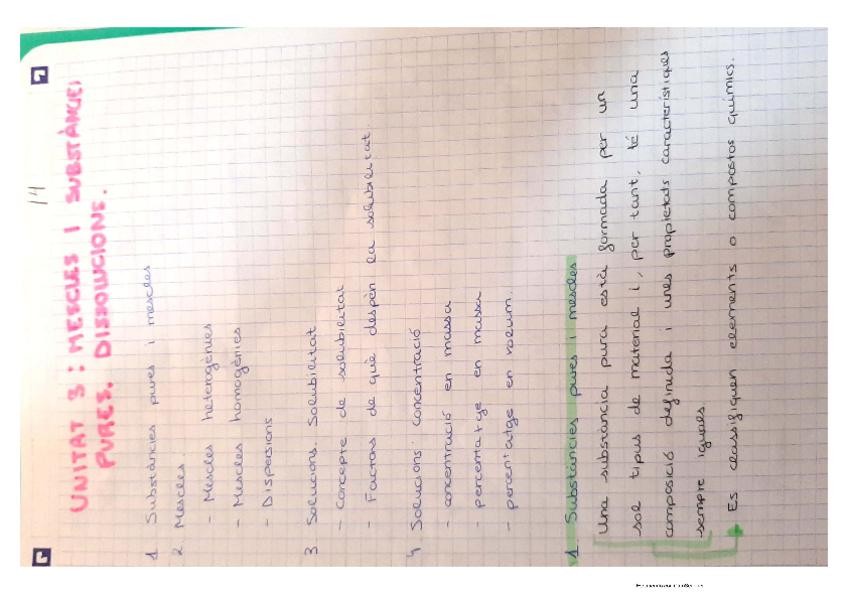 14
UNITAT 3: MESCLES I SUBSTÀNCIES
PURES. DISSOLUCIONS.
1 Substàncies pures i mescles
2 Mescles.
- Mescles heterogènies
- Mescles homogènies
- Dispersions
3 Solucions. Solubilitat
- Concepte de solubilitat
- Factors de què despèn la solubilitat.
4 Solucions: concentració
- concentració en massa
- percentatge en massa
- percentatge en volum.
1 Substàncies pures i mescles
Una substància pura està formada per un
sol tipus de material i, per tant, té una
composició definida i unes propietats característiques
sempre iguals.
Es classifiquen elements o compostos químics.